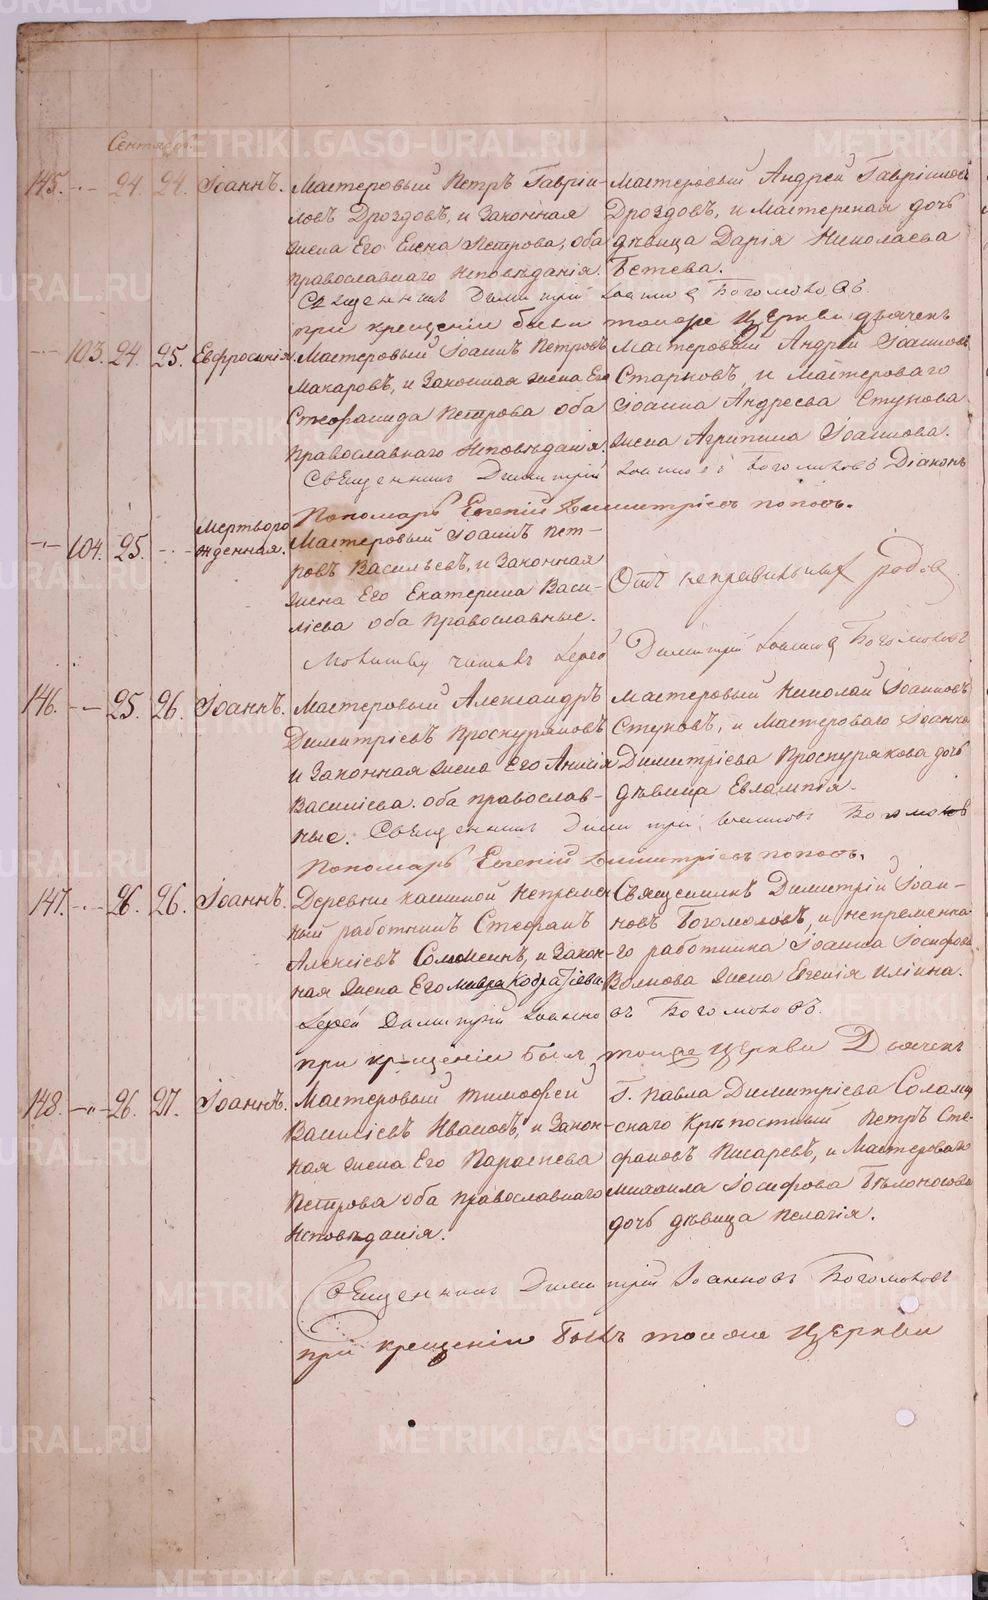 Сентябрь.
145. -"- 24. 24. Іоаннъ. Мастеровый Петръ Гавріи- Мастеровый Андрей Гавріиловъ
ловъ Дроздовъ, и Законная Дроздовъ, и Мастерская дочь
жена Его Елена Петрова, оба дѣвица Дарія Николаева
православнаго Исповѣданія. Бетева.
Священникъ Димитрій Іоанновъ Богомоловъ.
при крещеніи былъ тойже Церкви дьячекъ
-"- 103. 24. 25. Евфросинія. Мастеровый Іоаннъ Петровъ Мастеровый Андрей Іоанновъ
Макаровъ, и Законная жена Его Старковъ, и Мастероваго
Стефанида Петрова оба Іоанна Андреева Стукова
православнаго Исповѣданія. жена Агрипина Іоаннова.
Священникъ Димитрій Іоанновъ Богомоловъ Діаконъ
Пономарь Евгеній Димитріевъ Поповъ.
-"- 104. 25. -"- Мертворо
жденная. Мастеровый Іоаннъ Пет-
ровъ Васильевъ, и Законная
жена Его Екатерина Васи- Отъ неправильныхъ родовъ
ліева оба Православные.
Молитву читалъ Іерей Димитрій Іоанновъ Богомоловъ
146. -"- 25. 26. Іоаннъ. Мастеровый Александръ Мастеровый Николай Іоанновъ
Димитріевъ Проскуряковъ Стуковъ, и Мастероваго Іоанна
и Законная жена Его Анисія Димитріева Проскурякова дочь
Василіева. оба православ- дѣвица Евлампія.
ные. Священникъ Димитрій Іоанновъ Богомоловъ
Пономарь Евгеній Димитріевъ Поповъ.
147. -"- 26. 26. Іоаннъ. Деревни каменной Непремен Священникъ Димитрій Іоан-
ный работникъ Стефанъ новъ Богомоловъ, и непременна-
Алексіевъ Соломеинъ, и Закон- го работника Іоанна Іосифова
ная жена Его Мавра Кодратіева Волкова жена Евгенія Иліина.
Іерей Димитрій Іоанновъ Богомоловъ.
при крещеніи былъ тойже Церкви Дьячекъ
148. -"- 26. 27. Іоаннъ. Мастеровый Тимофей Г. Павла Димитріева Соломир
Василіевъ Ивановъ, и Закон- скаго Крѣпостный Петръ Сте-
ная жена Его Параскева фановъ Писаревъ, и Мастероваго
Петрова оба православнаго Михаила Іосифова Бѣлоносова
Исповѣданія. дочь дѣвица Пелагія.
Священникъ Димитрій Іоанновъ Богомоловъ
при крещеніи былъ тойже Церкви
METRIKI.GASO-URAL.RU